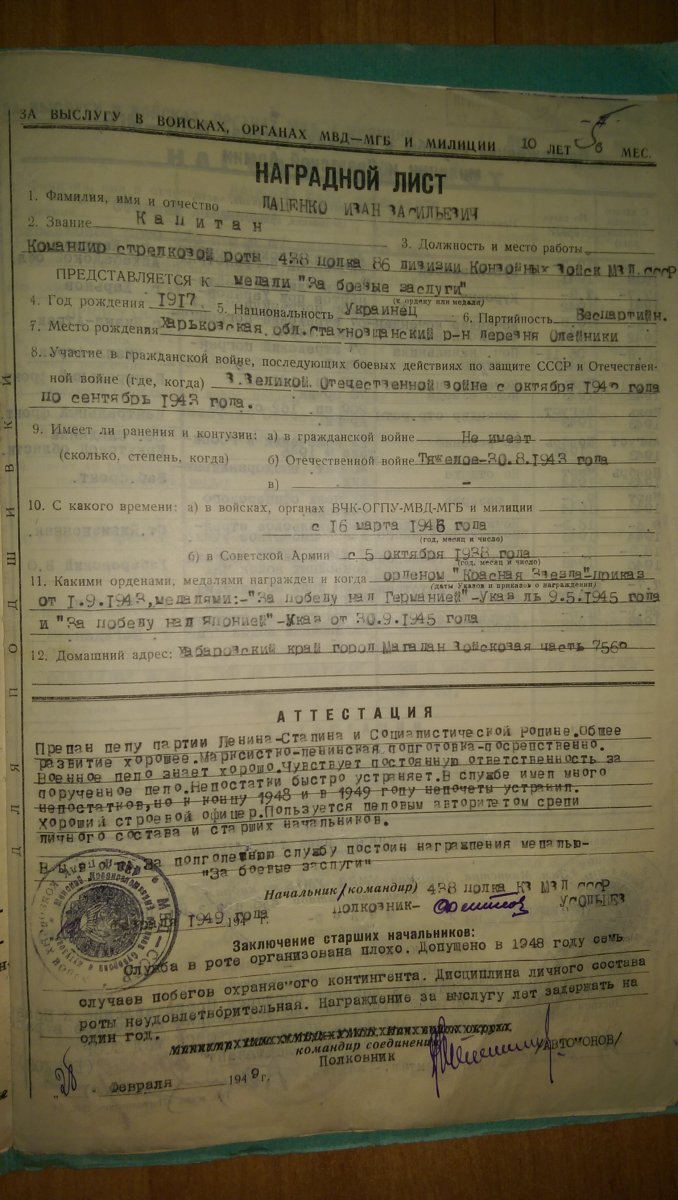 ЗА ВЫСЛУГУ В ВОЙСКАХ, ОРГАНАХ МВД—МГБ И МИЛИЦИИ 10 ЛЕТ 5 МЕС.
НАГРАДНОЙ ЛИСТ
1. Фамилия, имя и отчество ПАЦЕНКО ИВАН ВАСИЛЬЕВИЧ
2. Звание Капитан
3. Должность и место работы
Командир стрелковой роты 438 полка 86 дивизии Конвойных Войск МВД СССР
ПРЕДСТАВЛЯЕТСЯ К медали "За боевые заслуги"
(к ордену или медали)
4. Год рождения 1917 5. Национальность Украинец 6. Партийность Беспартийн.
7. Место рождения Харьковская обл. р-н деревня Олейники
8. Участие в гражданской войне, последующих боевых действиях по защите СССР и Отечествен-
ной войне (где, когда) В Великой Отечественной войне с октября года
по сентябрь 1943 года.
9. Имеет ли ранения и контузии: а) в гражданской войне Не имеет
(сколько, степень, когда) б) Отечественной войне Тяжелое-30.8.1943 года
в) –
10. С какого времени: а) в войсках, органах ВЧК-ОГПУ-МВД-МГБ и милиции
с 16 марта 1946 года
(год, месяц и число)
б) в Советской Армии с 5 октября 1938 года
(год, месяц и число)
11. Какими орденами, медалями награжден и когда орденом "Красная Звезда"-приказ
(даты Указов и приказов о награждении)
от 1.9.1943, медалями:-"За победу над Германией"-Указ 9.5.1945 года
и "За победу над Японией"-Указ от 30.9.1945 года
12. Домашний адрес: Хабаровский край город Магадан Войсковая часть
АТТЕСТАЦИЯ
Предан делу партии Ленина-Сталина и Социалистической Родине. Общее
развитие хорошее. Марксистко-ленинская подготовка-посредственно.
Военное дело знает хорошо. Чувствует постоянную ответственность за
порученное дело. Недостатки быстро устраняет. В службе имел много
недостатков, но к концу 1948 и в 1949 году недочеты устранил.
Хороший строевой офицер. Пользуется деловым авторитетом среди
личного состава и старших начальников.
В ы в о д: За долголетнюю службу достоин награждения медалью-
"За боевые заслуги"
Начальник (командир) 438 полка КВ МВД СССР
Полковник-
1949 года
Заключение старших начальников:
Служба в роте организована плохо. Допущено в 1948 году семь
случаев побегов охраняемого контингента. Дисциплина личного состава
роты неудовлетворительная. Награждение за выслугу лет задержать на
один год.
командир соединения
Полковник /АВТОМОНОВ/
Февраля 1949 г.
ДЛЯ ПОДШИВКИ